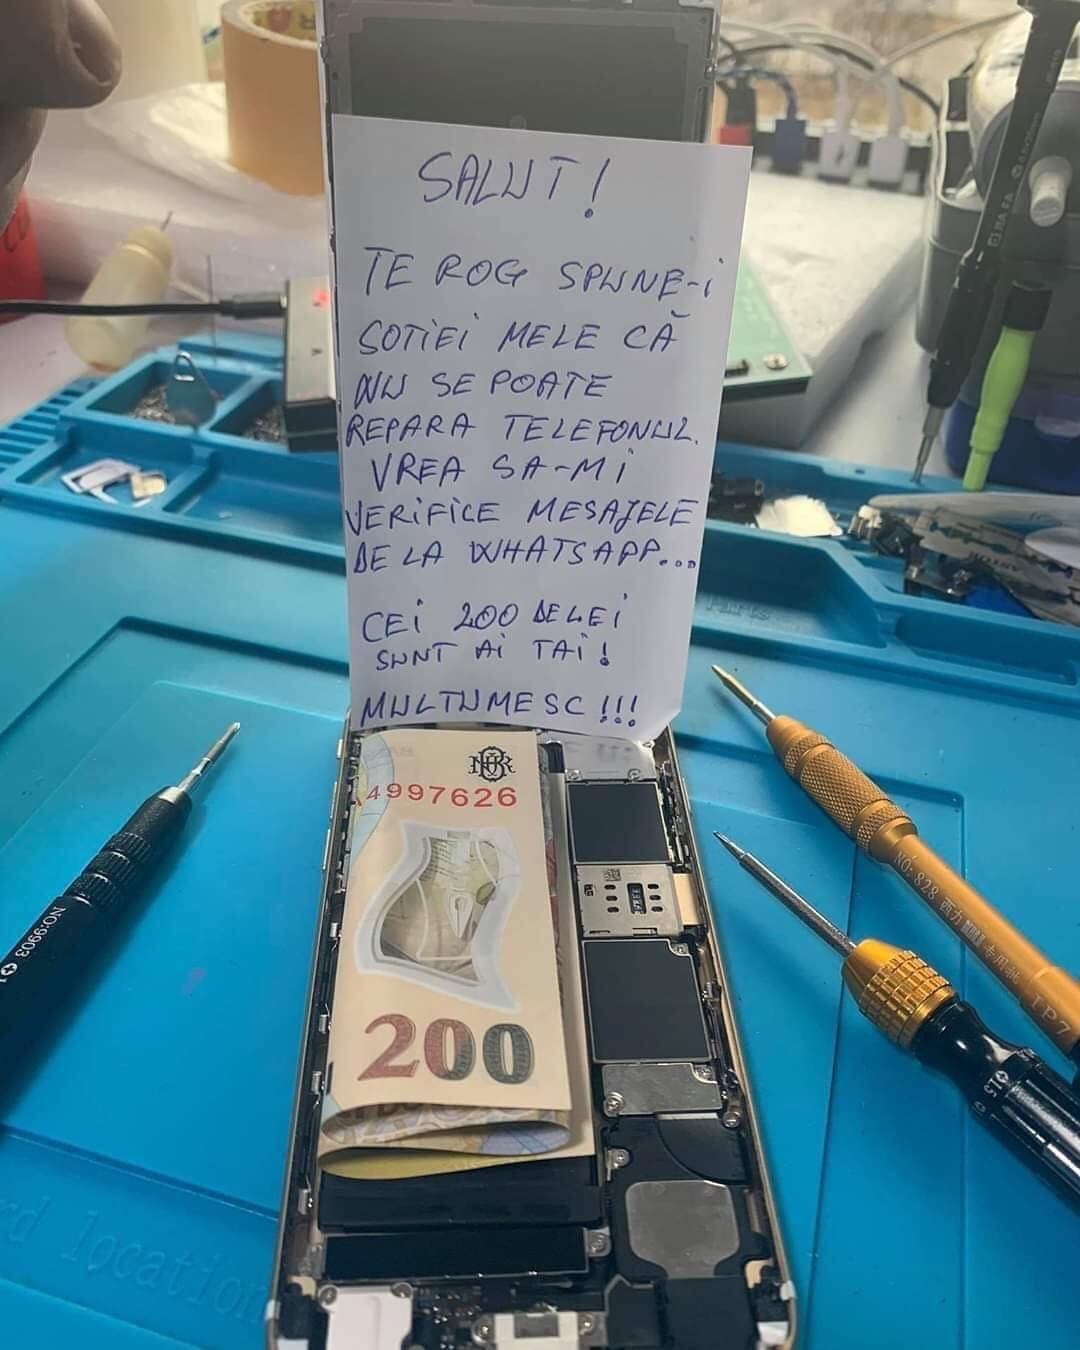 SALUT!
TE ROG SPUNE-i
SOTIEI MELE CĂ
NU SE POATE
REPARA TELEFONUL.
VREA SA-Mi
VERIFICE MESAJELE
DE LA WHATSAPP...
CEI 200 DE LEI
SUNT AI TAI!
MULTUMESC!!!
4997626
200
NO:9903
NO: 828 西力
IP7